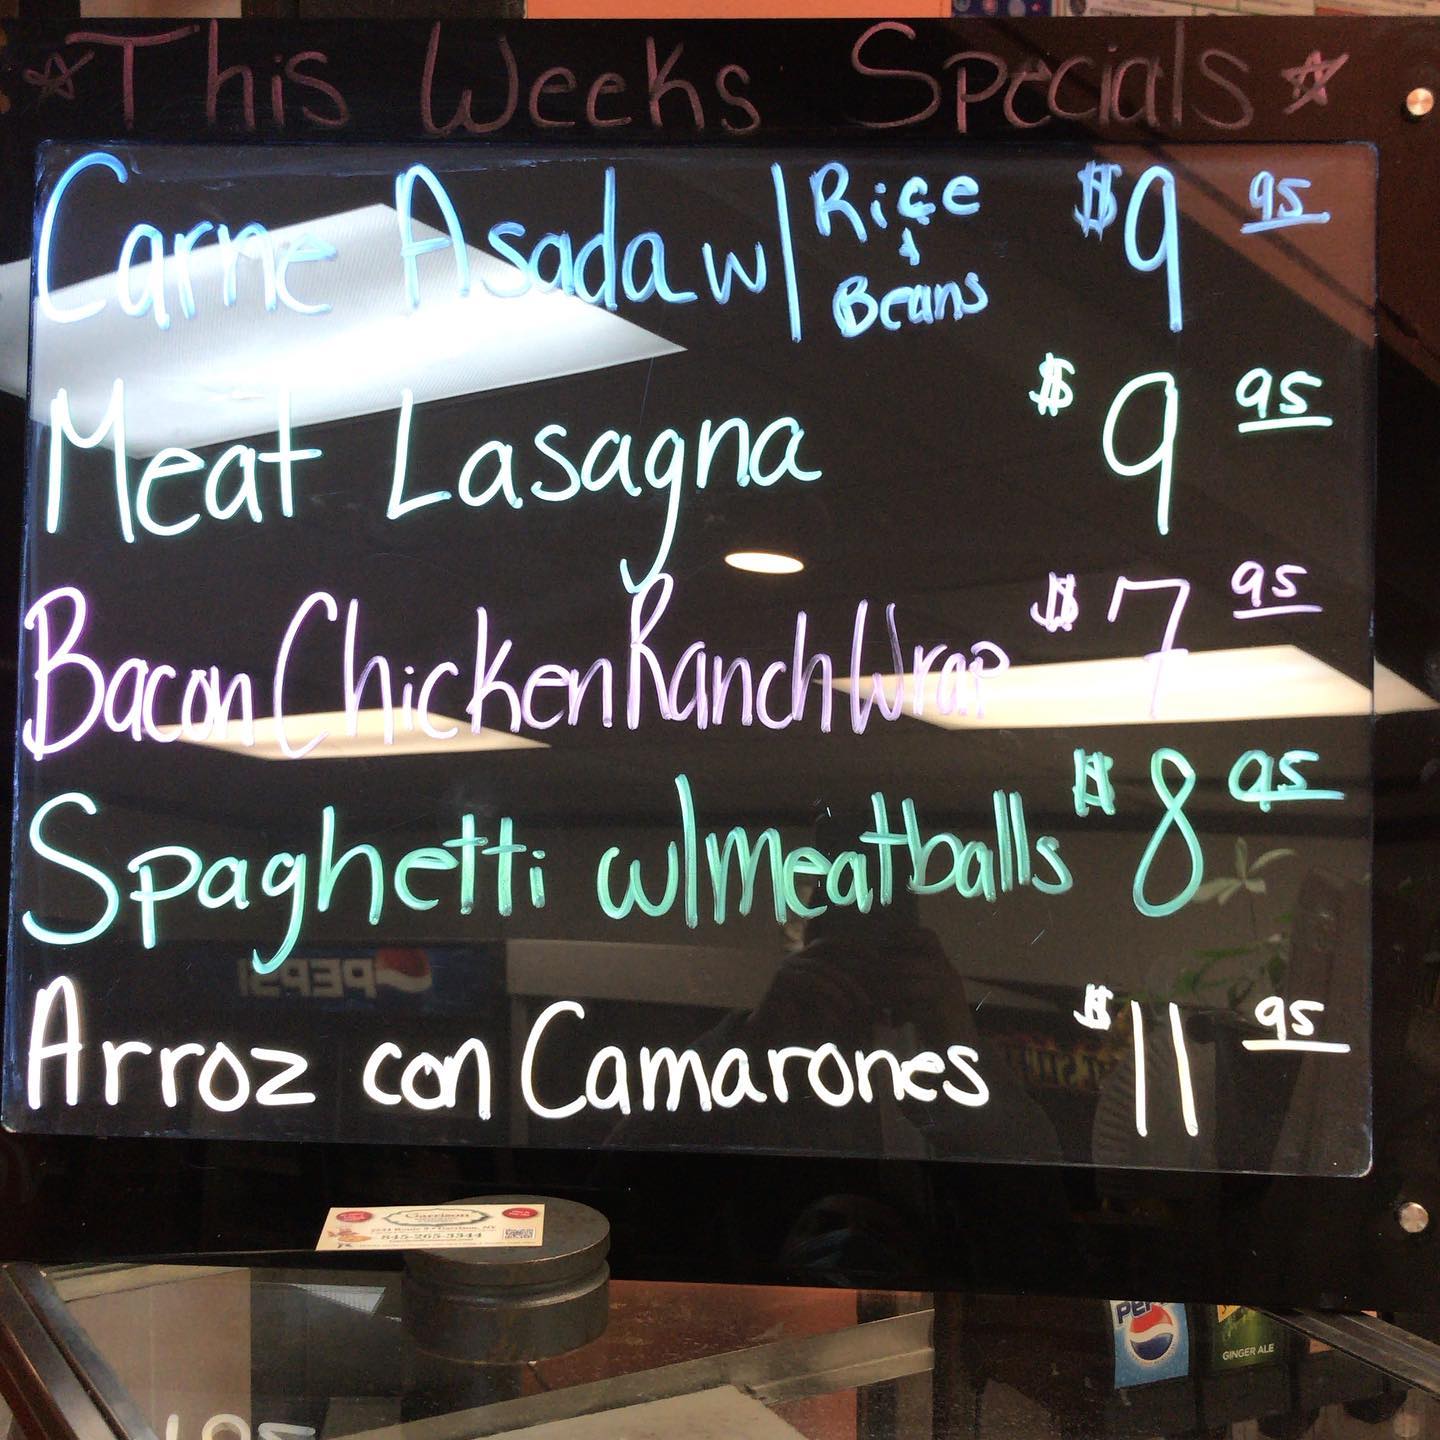 ☆ This Weeks Specials ☆
Carne Asada w/ Rice & Beans $9 95
Meat Lasagna $9 95
Bacon Chicken Ranch Wrap $7 95
Spaghetti w/meatballs $8 95
Arroz con Camarones $11 95
PEPSI
Garrison
845-265-3344
GINGER ALE